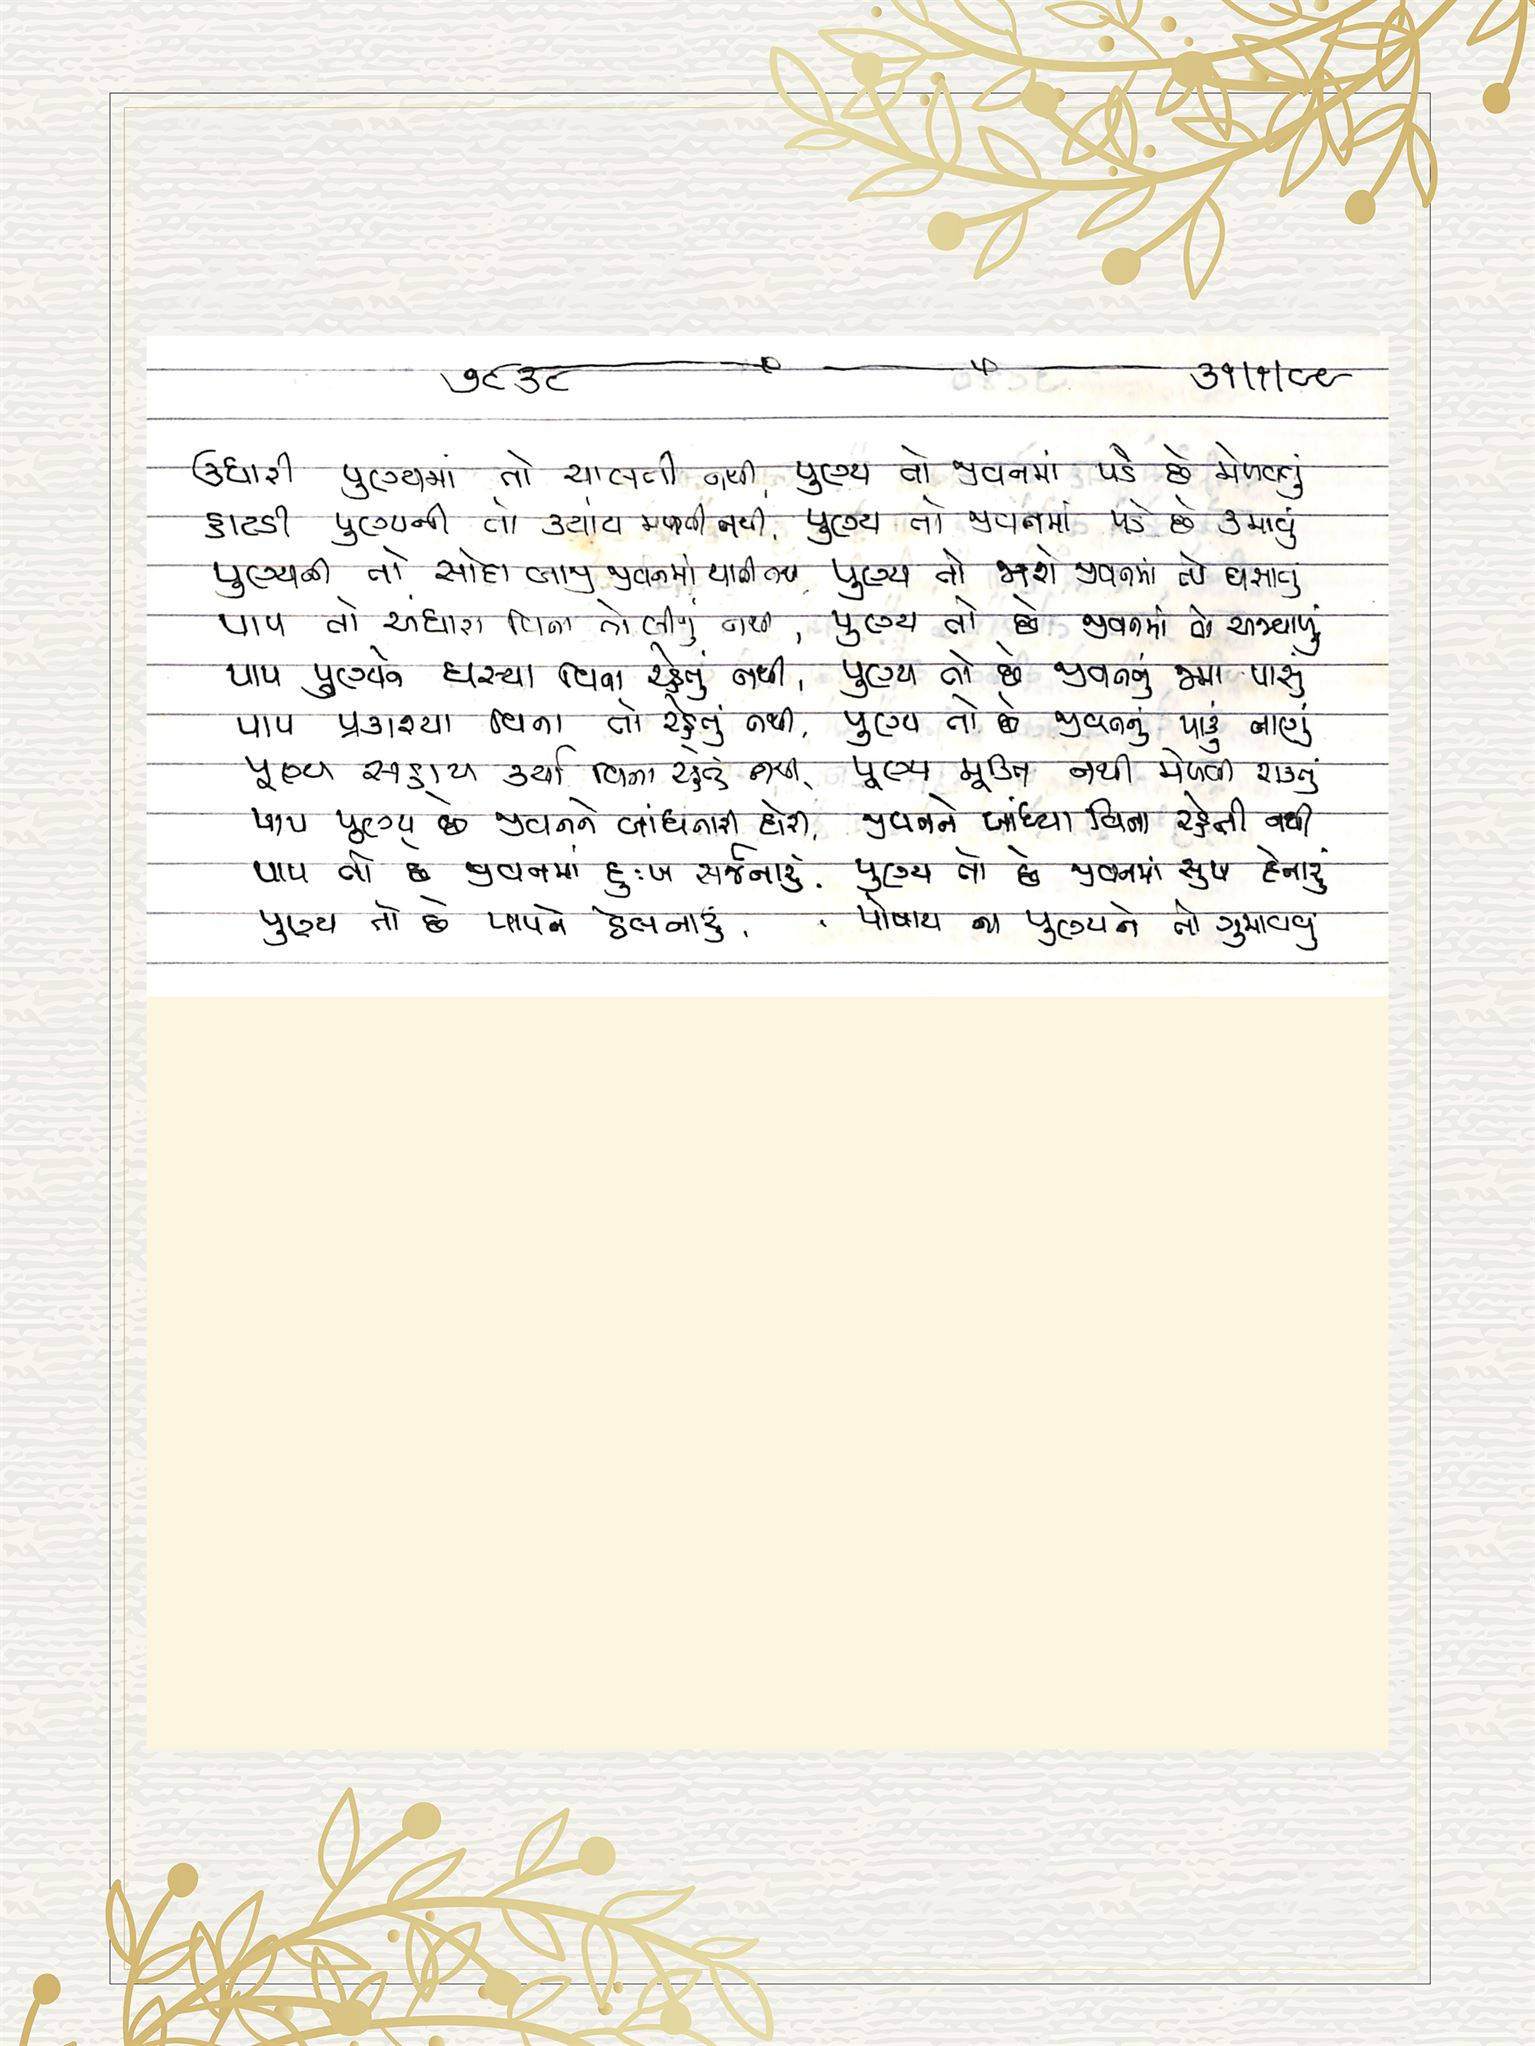 ૭૯૩૯ ૩૧/૧/૯૯
ઉધારી પુણ્યમાં તો ચાલતી નથી, પુણ્ય તો જીવનમાં પડે છે મેળવવું
હાટડી પુણ્યની તો ક્યાંય મળતી નથી, પુણ્ય તો જીવનમાં પડે છે કમાવું
પુણ્યની તો સોદા બાજી જીવનમાં થાતી નથી, પુણ્ય તો જાશે જીવનમાં તો ઘસાવું
પાપ તો અંધારા વિના બીજું નથી, પુણ્ય તો છે જીવનમાં તો અજવાળું
પાપ પુણ્યને ઘસ્યા વિના રહેતું નથી, પુણ્ય તો છે જીવનનું જમા પાસું
પાપ પ્રકાશ્યા વિના તો રહેતું નથી, પુણ્ય તો છે જીવનનું પાકું નાણું
પૂણ્ય સહાય કર્યા વિના રહેતું નથી, પૂણ્ય મૂક્તિ નથી મેળવી શકતું
પાપ પૂણ્ય છે જીવનને બાંધનારી દોરી, જીવનને બાંધ્યા વિના રહેતી નથી
પાપ તો છે જીવનમાં દુઃખ સર્જનારું. પુણ્ય તો છે જીવનમાં સુખ દેનારું
પુણ્ય તો છે પાપને ઠેલનારું. પોષાય ના પુણ્યને તો ગુમાવવું